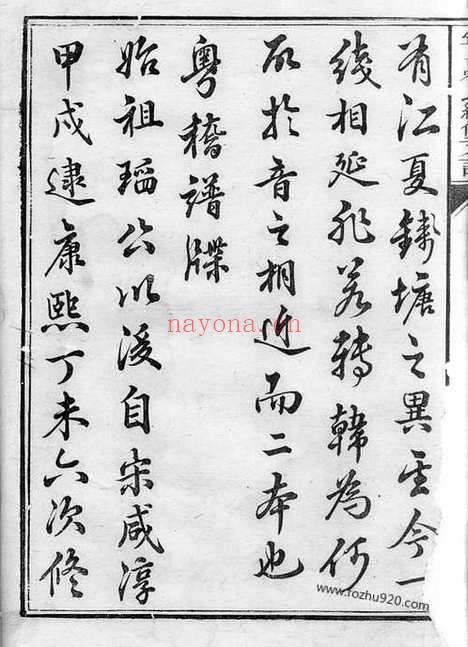 有江夏錢塘之異至今一
綫相延非若轉韓為何
取於音之相近而二本也
粵稽譜牒
始祖瑙公以後自宋咸淳
甲戌逮康熙丁未六次修
nayona.cn
www.fozhu920.com